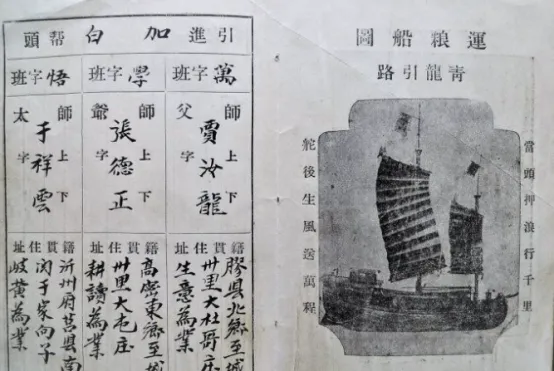 運粮船圖
青龍引路
當頭押浪行千里
舵後生風送萬程
引進 加白 幫頭
萬字班
師父
上下字
賈 龍
籍貫住址
膠縣北鄉至城
卅里大杜哥庄
生意為業
學字班
師爺
上下字
張德正
籍貫住址
高密東鄉至城
卅里大屯庄
耕讀為業
悟字班
師太
上下字
于祥雲
籍貫住址
沂州府莒縣南
于家 子
岐黃為業